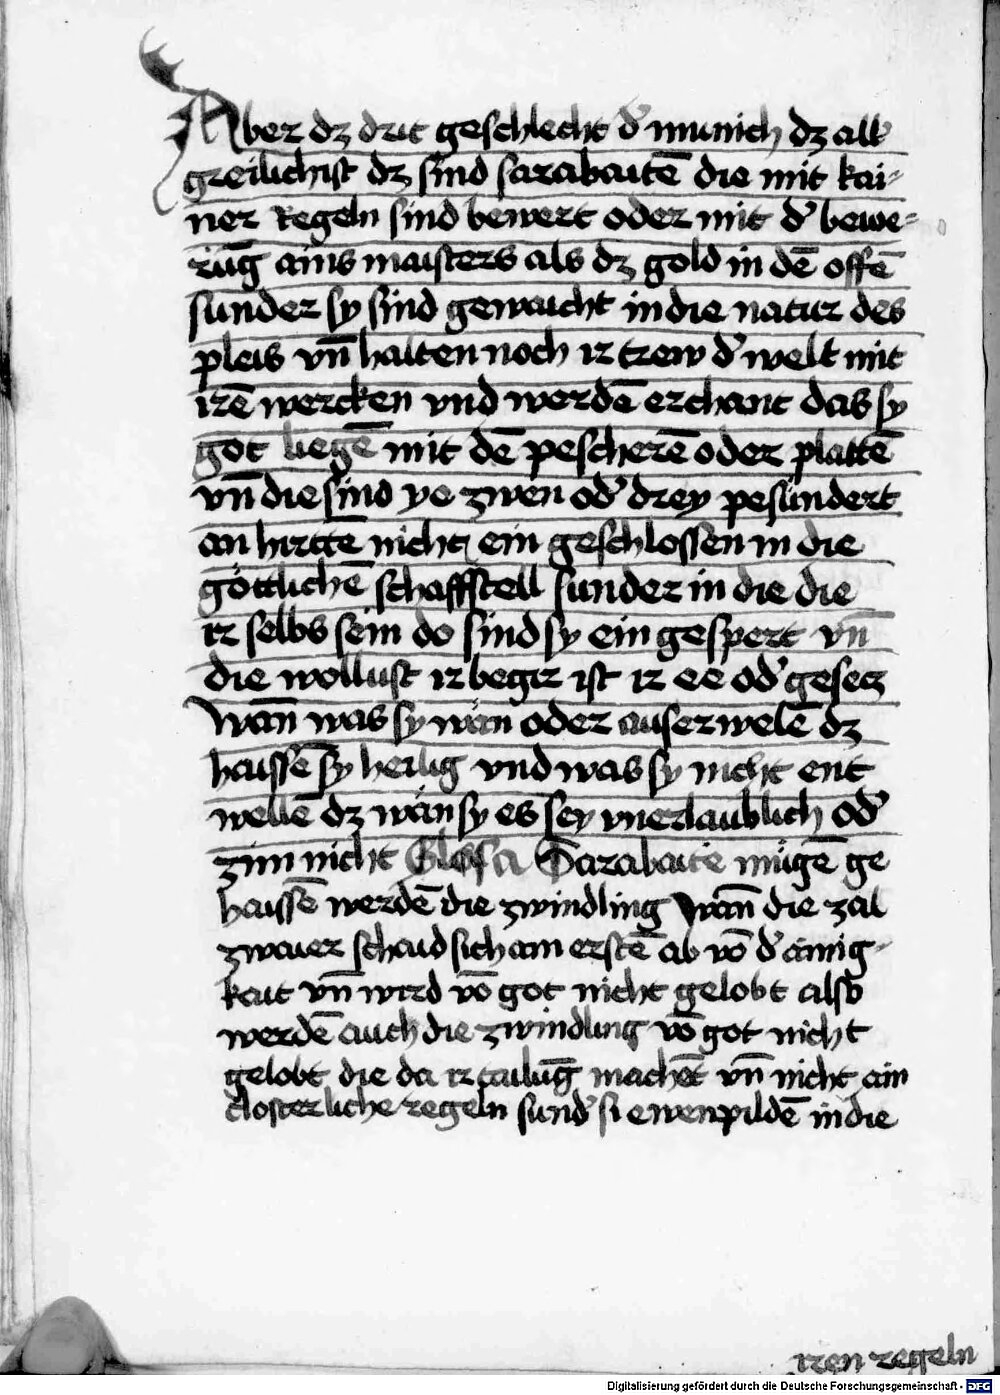 Aber dz drit geschlecht d' munich dz all'
greilichist dz sind sarabaitē die mit kai-
ner Regeln sind bewert oder mit d' bewe-
rūg ains maisters als dz gold in dē offē
sunder sy sind gewaicht in die natur des
pleis vn̄ halten noch ir trew d' welt mit
irē wercken vnd werdē erchant das sy
got liegē mit dē pescherē oder plattē
vn̄ die sind ye zwen od' drey pesundert
an hirttē nicht ein geschlossen in die
göttlichē schaffstell sunder in die die
ir selbs sein do sind sy ein gespert vn̄
die wollust ir begir ist ir ee od' gesetz
Wan̄ was sy wän oder auserwelē dz
haissē sy heilig vnd was sy nicht ent
wellē dz wän sy es sey vnerlaublich od'
zim nicht Glosa Sarabaite mügē ge
haissē werdē die zwindling Wan̄ die zal
zwaier schaid sich am erstē ab vō d' ainig-
kait vn̄ wird vō got nicht gelobt also
werdē auch die zwindling vō got nicht
gelobt die da ir tailūg machēt vn̄ nicht ain
closterliche regeln sund' si ewenpildē in die
iren regeln
Digitalisierung gefördert durch die Deutsche Forschungsgemeinschaft - DFG